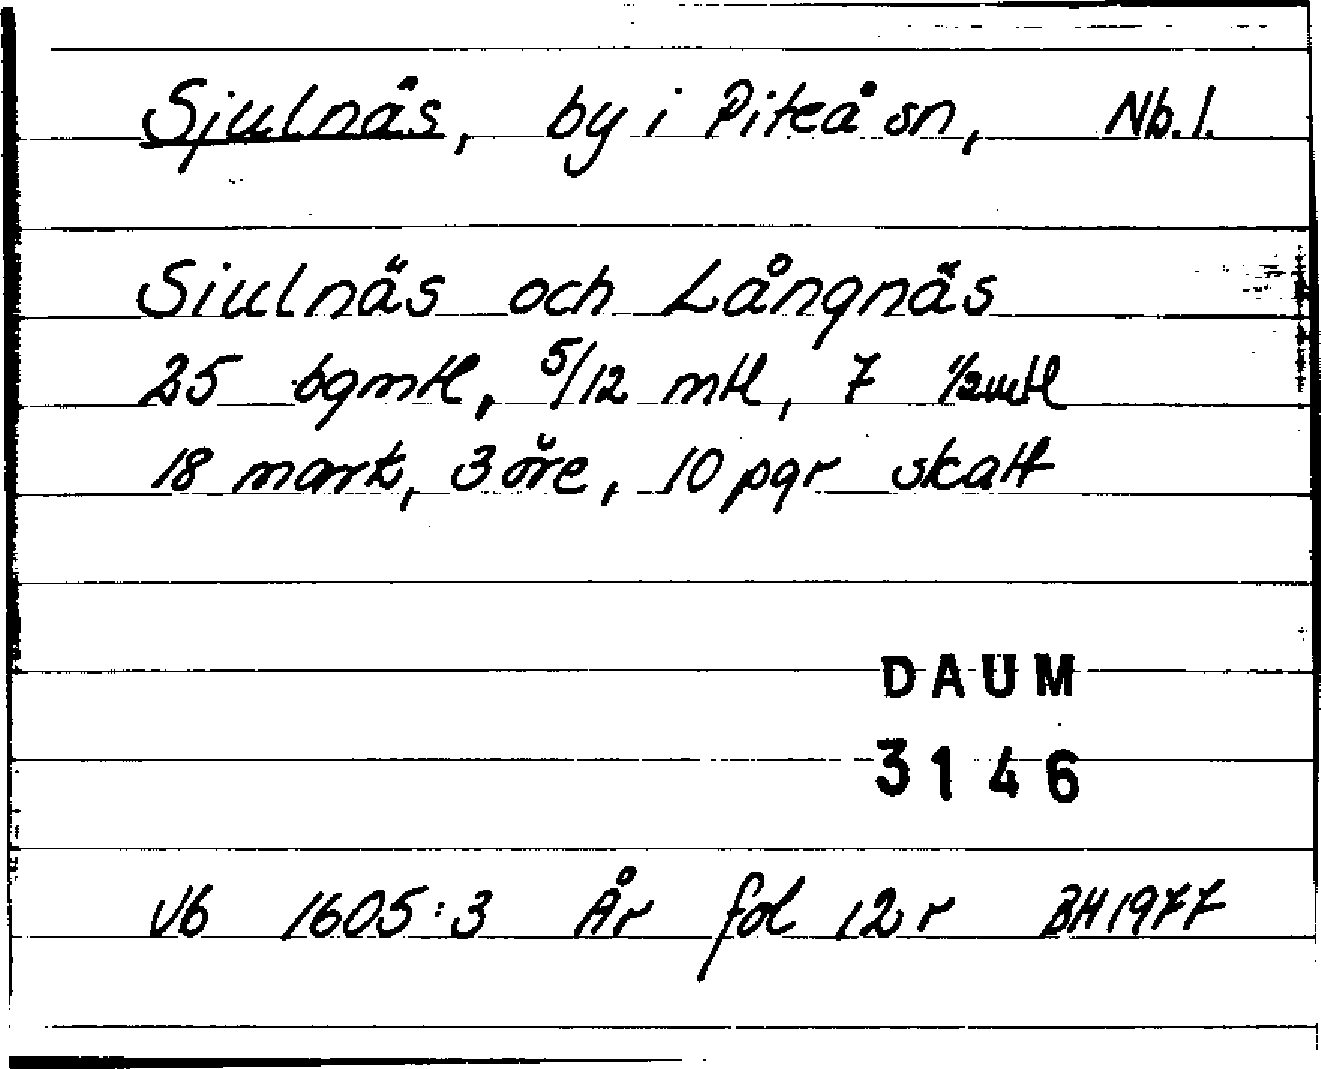 Sjulnäs, by i Piteå sn, Nb.l.
Siulnäs och Långnäs
25 bgmtl, 5/12 mtl, 7 1/2mtl
18 mark, 3 öre, 10 pgr skatt
DAUM
3146
Vb 1605:3 År fol 12 r BH 1977